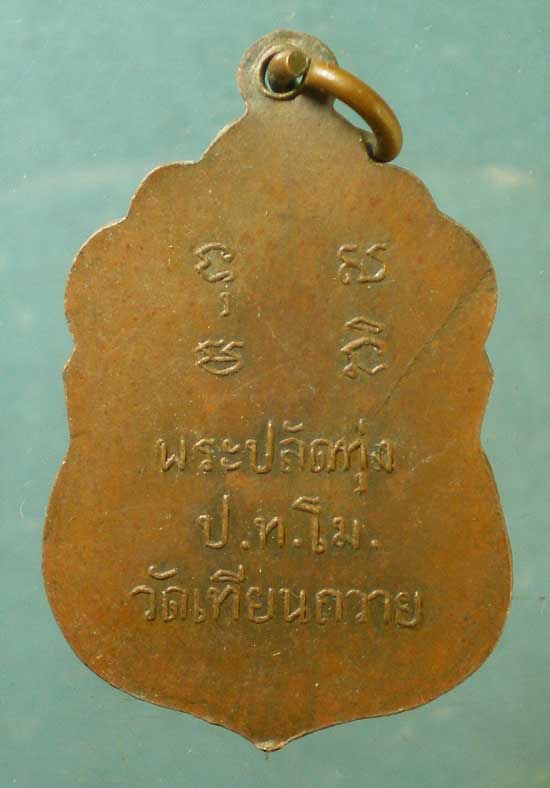 ទុ ស
ម និ
พระปลัดทุ่ง
ป.ท.โม.
วัดเทียนถวาย